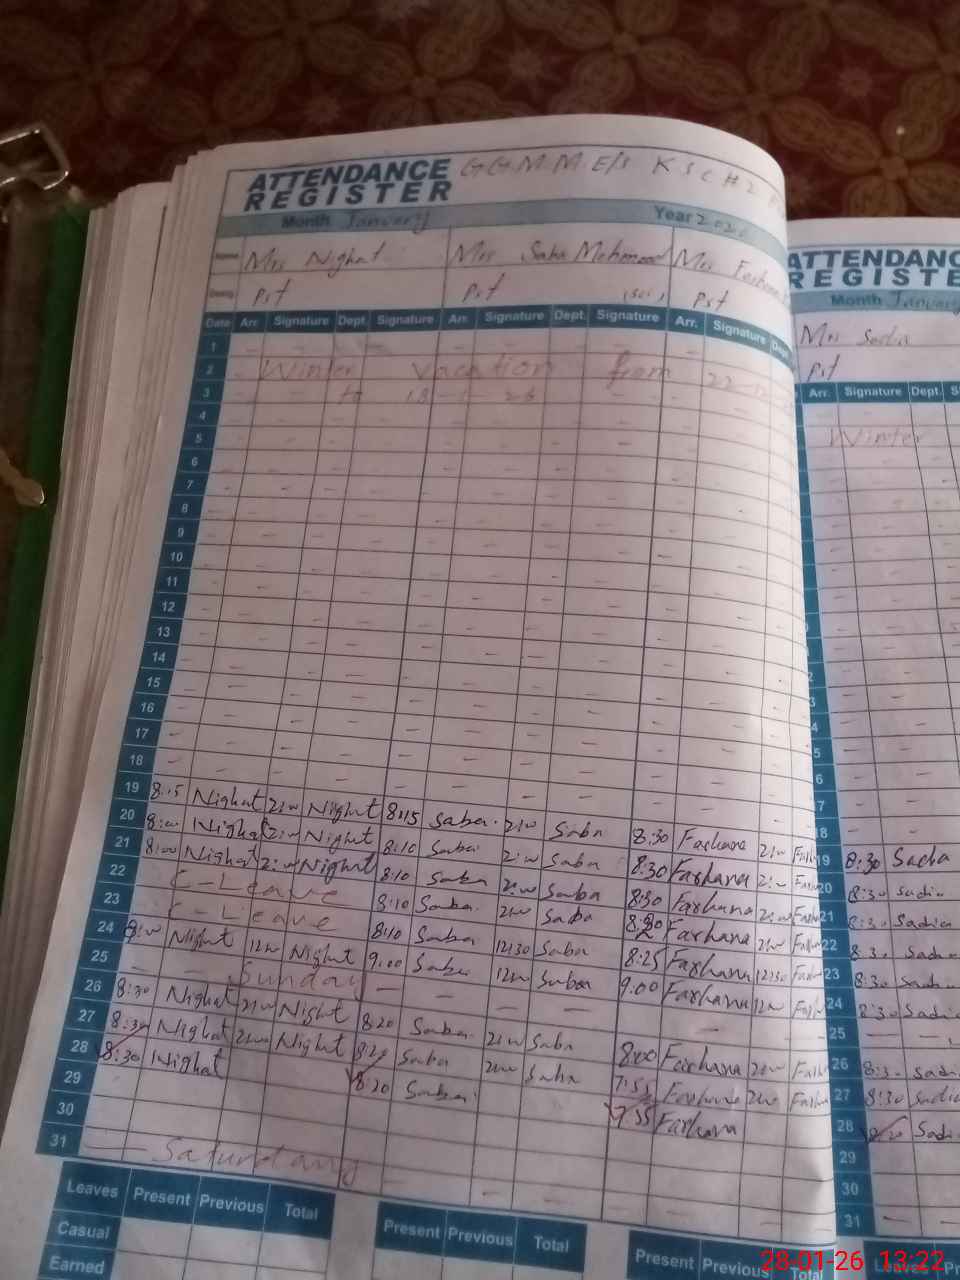 ATTENDANCE REGISTER G.G.M.M.E/S KSCH2
Month January Year
Name Mrs Nighat Mrs Saba Mehmood Mrs Farhana
Desig. Pst Pst Pst
Date Arr. Signature Dept. Signature Arr. Signature Dept. Signature Arr. Signature Dept.
1
2 Winter vacation from 22-12
3 to 18-1-26
4
5
6
7
8
9
10
11
12
13
14
15
16
17
18
19 8:15 Nighat 2:00 Nighat 8:15 Saba 2:00 Saba 8:30 Farhana 2:00
20 8:00 Nighat 2:00 Nighat 8:10 Saba 2:00 Saba 8:30 Farhana 2:00
21 8:00 Nighat 2:00 Nighat 8:10 Saba 2:00 Saba 8:30 Farhana 2:00
22 C-Leave 8:10 Saba 2:00 Saba Farhana 2:00
23 C-Leave 8:10 Saba 12:30 Saba 8:25 Farhana 12:30
24 Nighat 12:00 Nighat 9:00 Saba 12:00 Saba 9:00 Farhana 12:00
25 Sunday
26 8:30 Nighat 2:00 Nighat 8:20 Saba 2:00 Saba 8:00 Farhana 2:00
27 8:30 Nighat 2:00 Nighat 8:20 Saba 2:00 Saba 7:55 Farhana 2:00
28 8:30 Nighat 8:20 Saba 7:55 Farhana
29
30
31 Saturday
Leaves Present Previous Total Present Previous Total Present Previous
Casual
Earned
ATTENDANC
REGISTE
Month January
Mrs Sadia
Pst
Arr. Signature Dept.
Winter
18
19 8:30 Sadia
20 8:30 Sadia
21 8:30 Sadia
22 8:30 Sadia
23 8:30 Sadia
24 8:30 Sadia
25
26 8:30 Sadia
27 8:30 Sadia
28 8:20 Sadi
29
30
31
Leaves
28-01-26 13:22